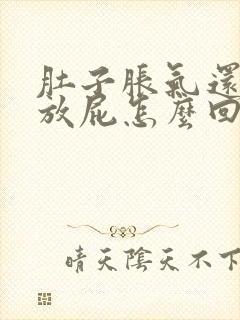 肚子脹氣還
放屁怎麼回
晴天陰天不下